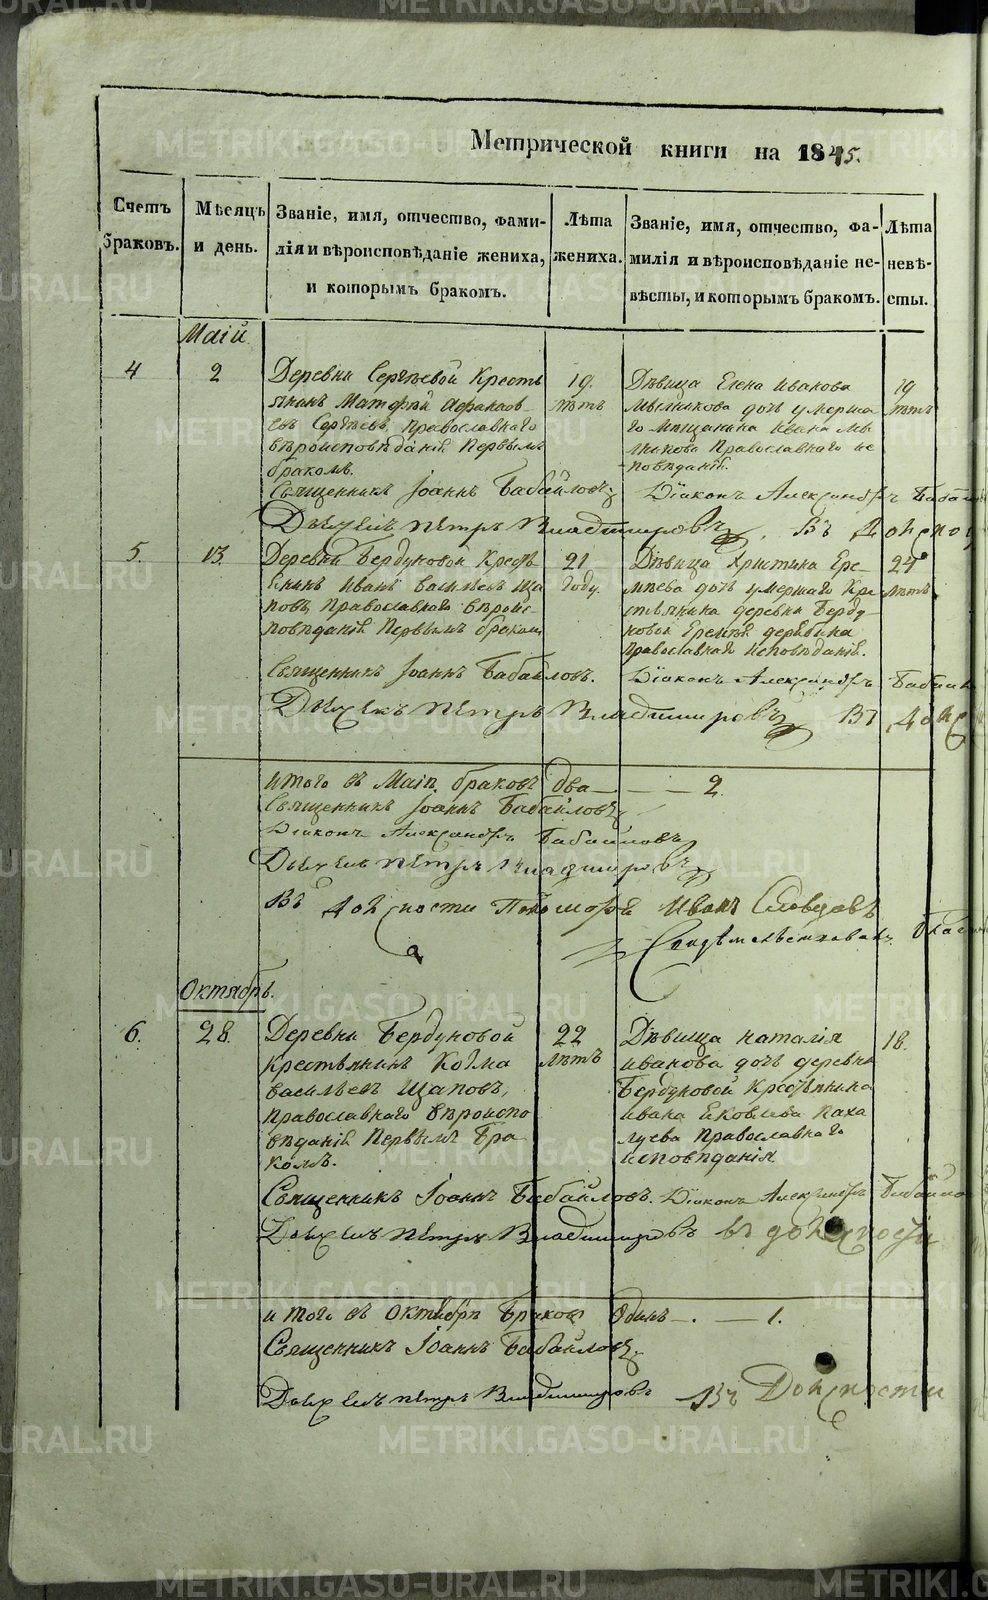 METRIKI.GASO-URAL.RU
Метрической книги на 1845.
Счетъ браковъ.
Мѣсяцъ и день.
Званіе, имя, отчество, фами-
лія и вѣроисповѣданіе жениха,
и которымъ бракомъ.
Лѣта
жениха.
Званіе, имя, отчество, фа-
милія и вѣроисповѣданіе не-
вѣсты, и которымъ бракомъ.
Лѣта
невѣ-
сты.
Маій
4
2
Деревни Сергѣевой Кресть
янинъ Матфѣй
Сергѣевъ, Православнаго
вѣроисповѣданія Первымъ
бракомъ.
19.
лѣтъ
Дѣвица Елена Иванова
Мыльникова дочь умерша
го мѣщанина Ивана Мы
льникова Православнаго ис
повѣданія.
19
лѣтъ
Священникъ Іоаннъ Бабайловъ
Діаконъ Александръ
Дьячекъ Петръ Владимировъ. Въ
5.
13.
Деревни Бердюковой Крестья
Иванъ Васильевъ Ща
повъ, Православнаго вѣроис-
повѣданія Первымъ бракомъ
21
году.
Дѣвица Христина Ере-
мѣева дочь умершаго Кре
стьянина деревни Бердю
ковой Еремѣя
Православнаго исповѣданія.
24
лѣтъ
Священникъ Іоаннъ Бабайловъ.
Діаконъ Александръ
Дьячекъ Петръ Владимировъ Въ
итого въ Маіи браковъ два — — — 2.
Священникъ Іоаннъ Бабайловъ
Діаконъ Александръ Бабайловъ
Дьячекъ Петръ Владимировъ
Въ должности Пономаря Иванъ Словцовъ
Октябрь.
6.
28.
Деревни Бердюковой
Крестьянинъ Козма
Васильевъ Щаповъ,
Православнаго вѣроиспо
вѣданія Первымъ бра
комъ.
22
лѣтъ
Дѣвица Наталія
Иванова дочь деревни
Бердюковой Крестьянина
Ивана Православнаго
исповѣданія
18.
Священникъ Іоаннъ Бабайловъ. Діаконъ Александръ Бабайло
Дьячекъ Петръ Владимировъ въ должности
итого въ Октябрѣ браковъ Одинъ —. — 1.
Священникъ Іоаннъ Бабайловъ.
Дьячекъ Петръ Владимировъ Въ Должности